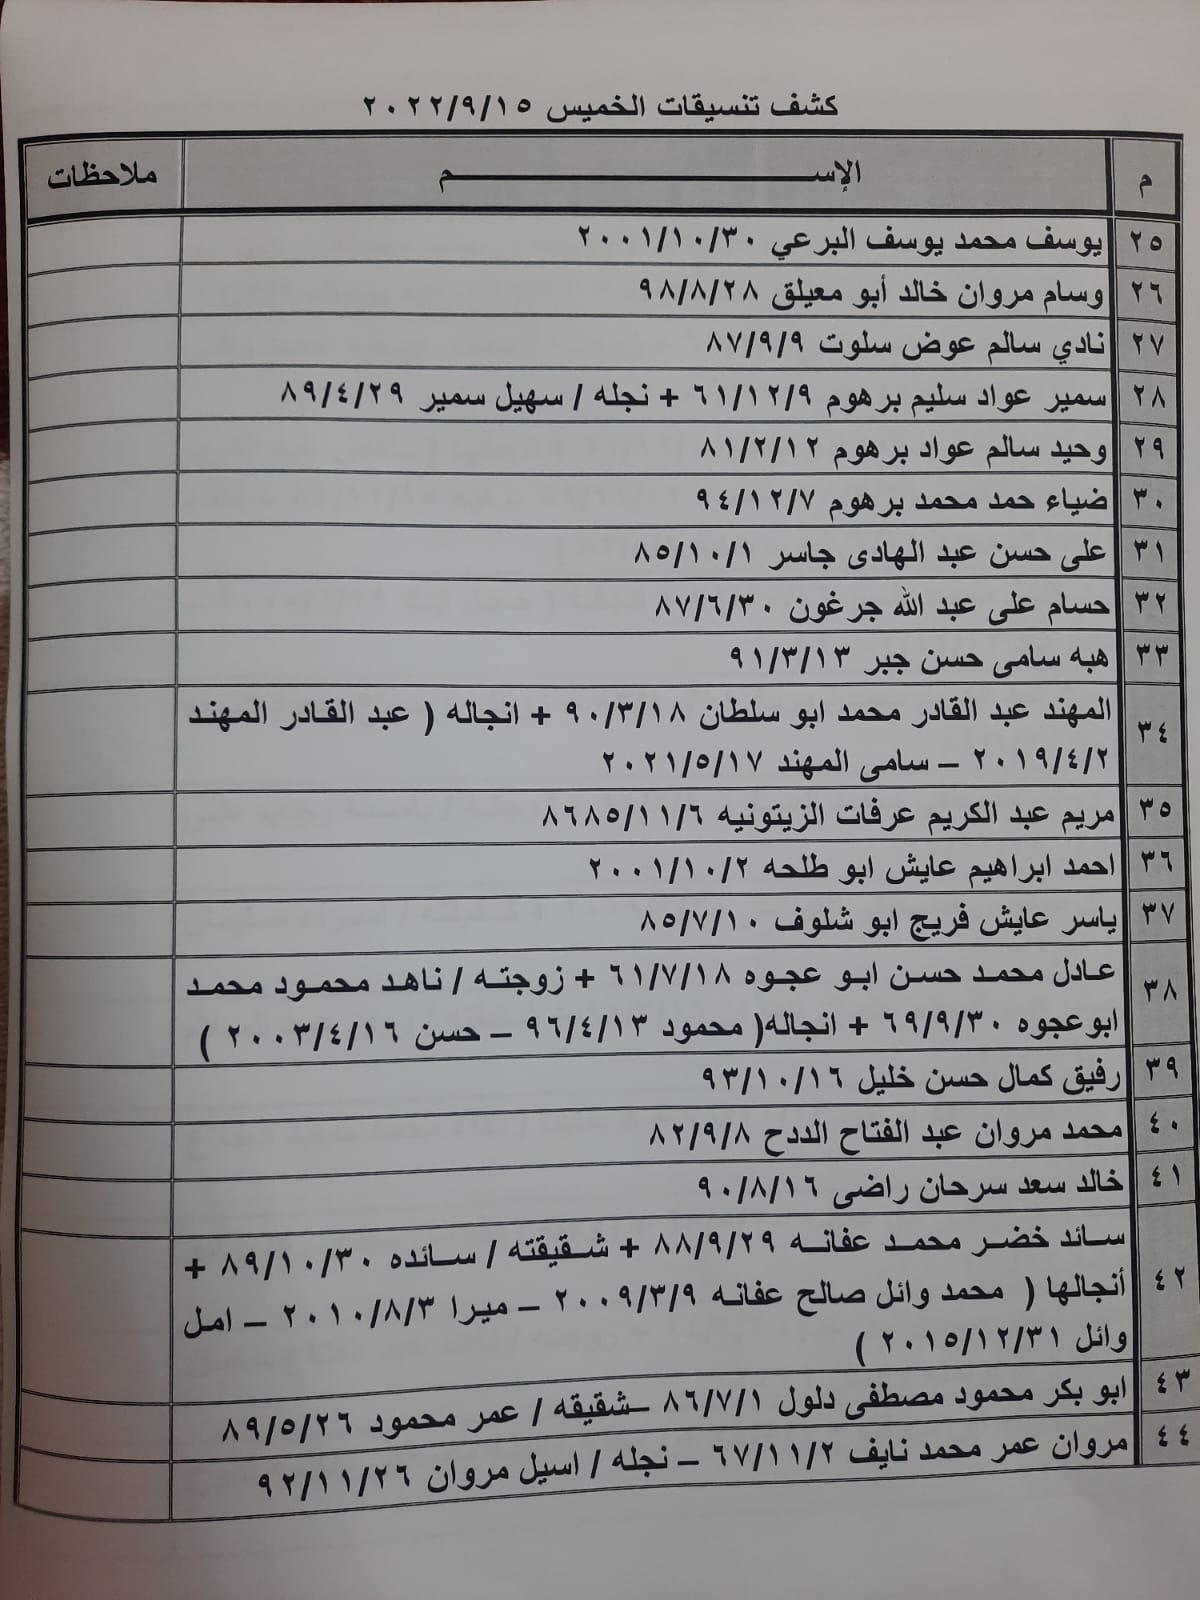 كشف تنسيقات الخميس ٢٠٢٢/٩/١٥
م الإســـــــم ملاحظات
٢٥ يوسف محمد يوسف البرعي ٢٠٠١/١٠/٣٠
٢٦ وسام مروان خالد أبو معيلق ٩٨/٨/٢٨
٢٧ نادي سالم عوض سلوت ٨٧/٩/٩
٢٨ سمير عواد سليم برهوم ٦١/١٢/٩ + نجله / سهيل سمير ٨٩/٤/٢٩
٢٩ وحيد سالم عواد برهوم ٨١/٢/١٢
٣٠ ضياء حمد محمد برهوم ٩٤/١٢/٧
٣١ على حسن عبد الهادى جاسر ٨٥/١٠/١
٣٢ حسام على عبد الله جرغون ٨٧/٦/٣٠
٣٣ هبه سامى حسن جبر ٩١/٣/١٣
٣٤ المهند عبد القادر محمد ابو سلطان ٩٠/٣/١٨ + انجاله ( عبد القادر المهند
٢٠١٩/٤/٢ – سامى المهند ٢٠٢١/٥/١٧
٣٥ مريم عبد الكريم عرفات الزيتونيه ٨٦٨٥/١١/٦
٣٦ احمد ابراهيم عايش ابو طلحه ٢٠٠١/١٠/٢
٣٧ ياسر عايش فريج ابو شلوف ٨٥/٧/١٠
٣٨ عادل محمد حسن ابو عجوه ٦١/٧/١٨ + زوجته / ناهد محمود محمد
ابوعجوه ٦٩/٩/٣٠ + انجاله( محمود ٩٦/٤/١٣ – حسن ٢٠٠٣/٤/١٦ )
٣٩ رفيق كمال حسن خليل ٩٣/١٠/١٦
٤٠ محمد مروان عبد الفتاح الددح ٨٢/٩/٨
٤١ خالد سعد سرحان راضى ٩٠/٨/١٦
٤٢ سائد خضر محمد عفانه ٨٨/٩/٢٩ + شقيقته / سائده ٨٩/١٠/٣٠ +
أنجالها ( محمد وائل صالح عفانه ٢٠٠٩/٣/٩ – ميرا ٢٠١٠/٨/٣ – امل
وائل ٢٠١٥/١٢/٣١ )
٤٣ ابو بكر محمود مصطفى دلول ٨٦/٧/١ –شقيقه / عمر محمود ٨٩/٥/٢٦
٤٤ مروان عمر محمد نايف ٦٧/١١/٢ – نجله / اسيل مروان ٩٢/١١/٢٦